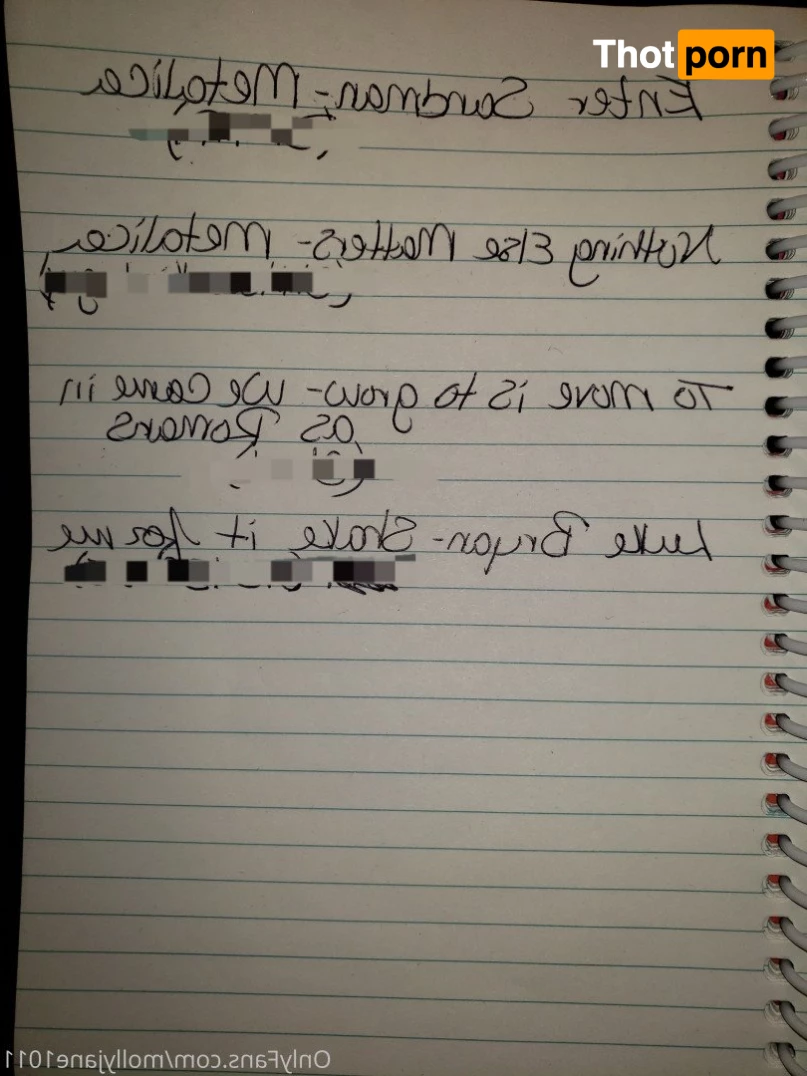 Thot porn
Enter Sandman - Metalica
Nothing Else Matters - Metalica
To move is to grow - we came in
as Romans
Luke Bryan - Shake it for me
OnlyFans.com/mollyjane1011